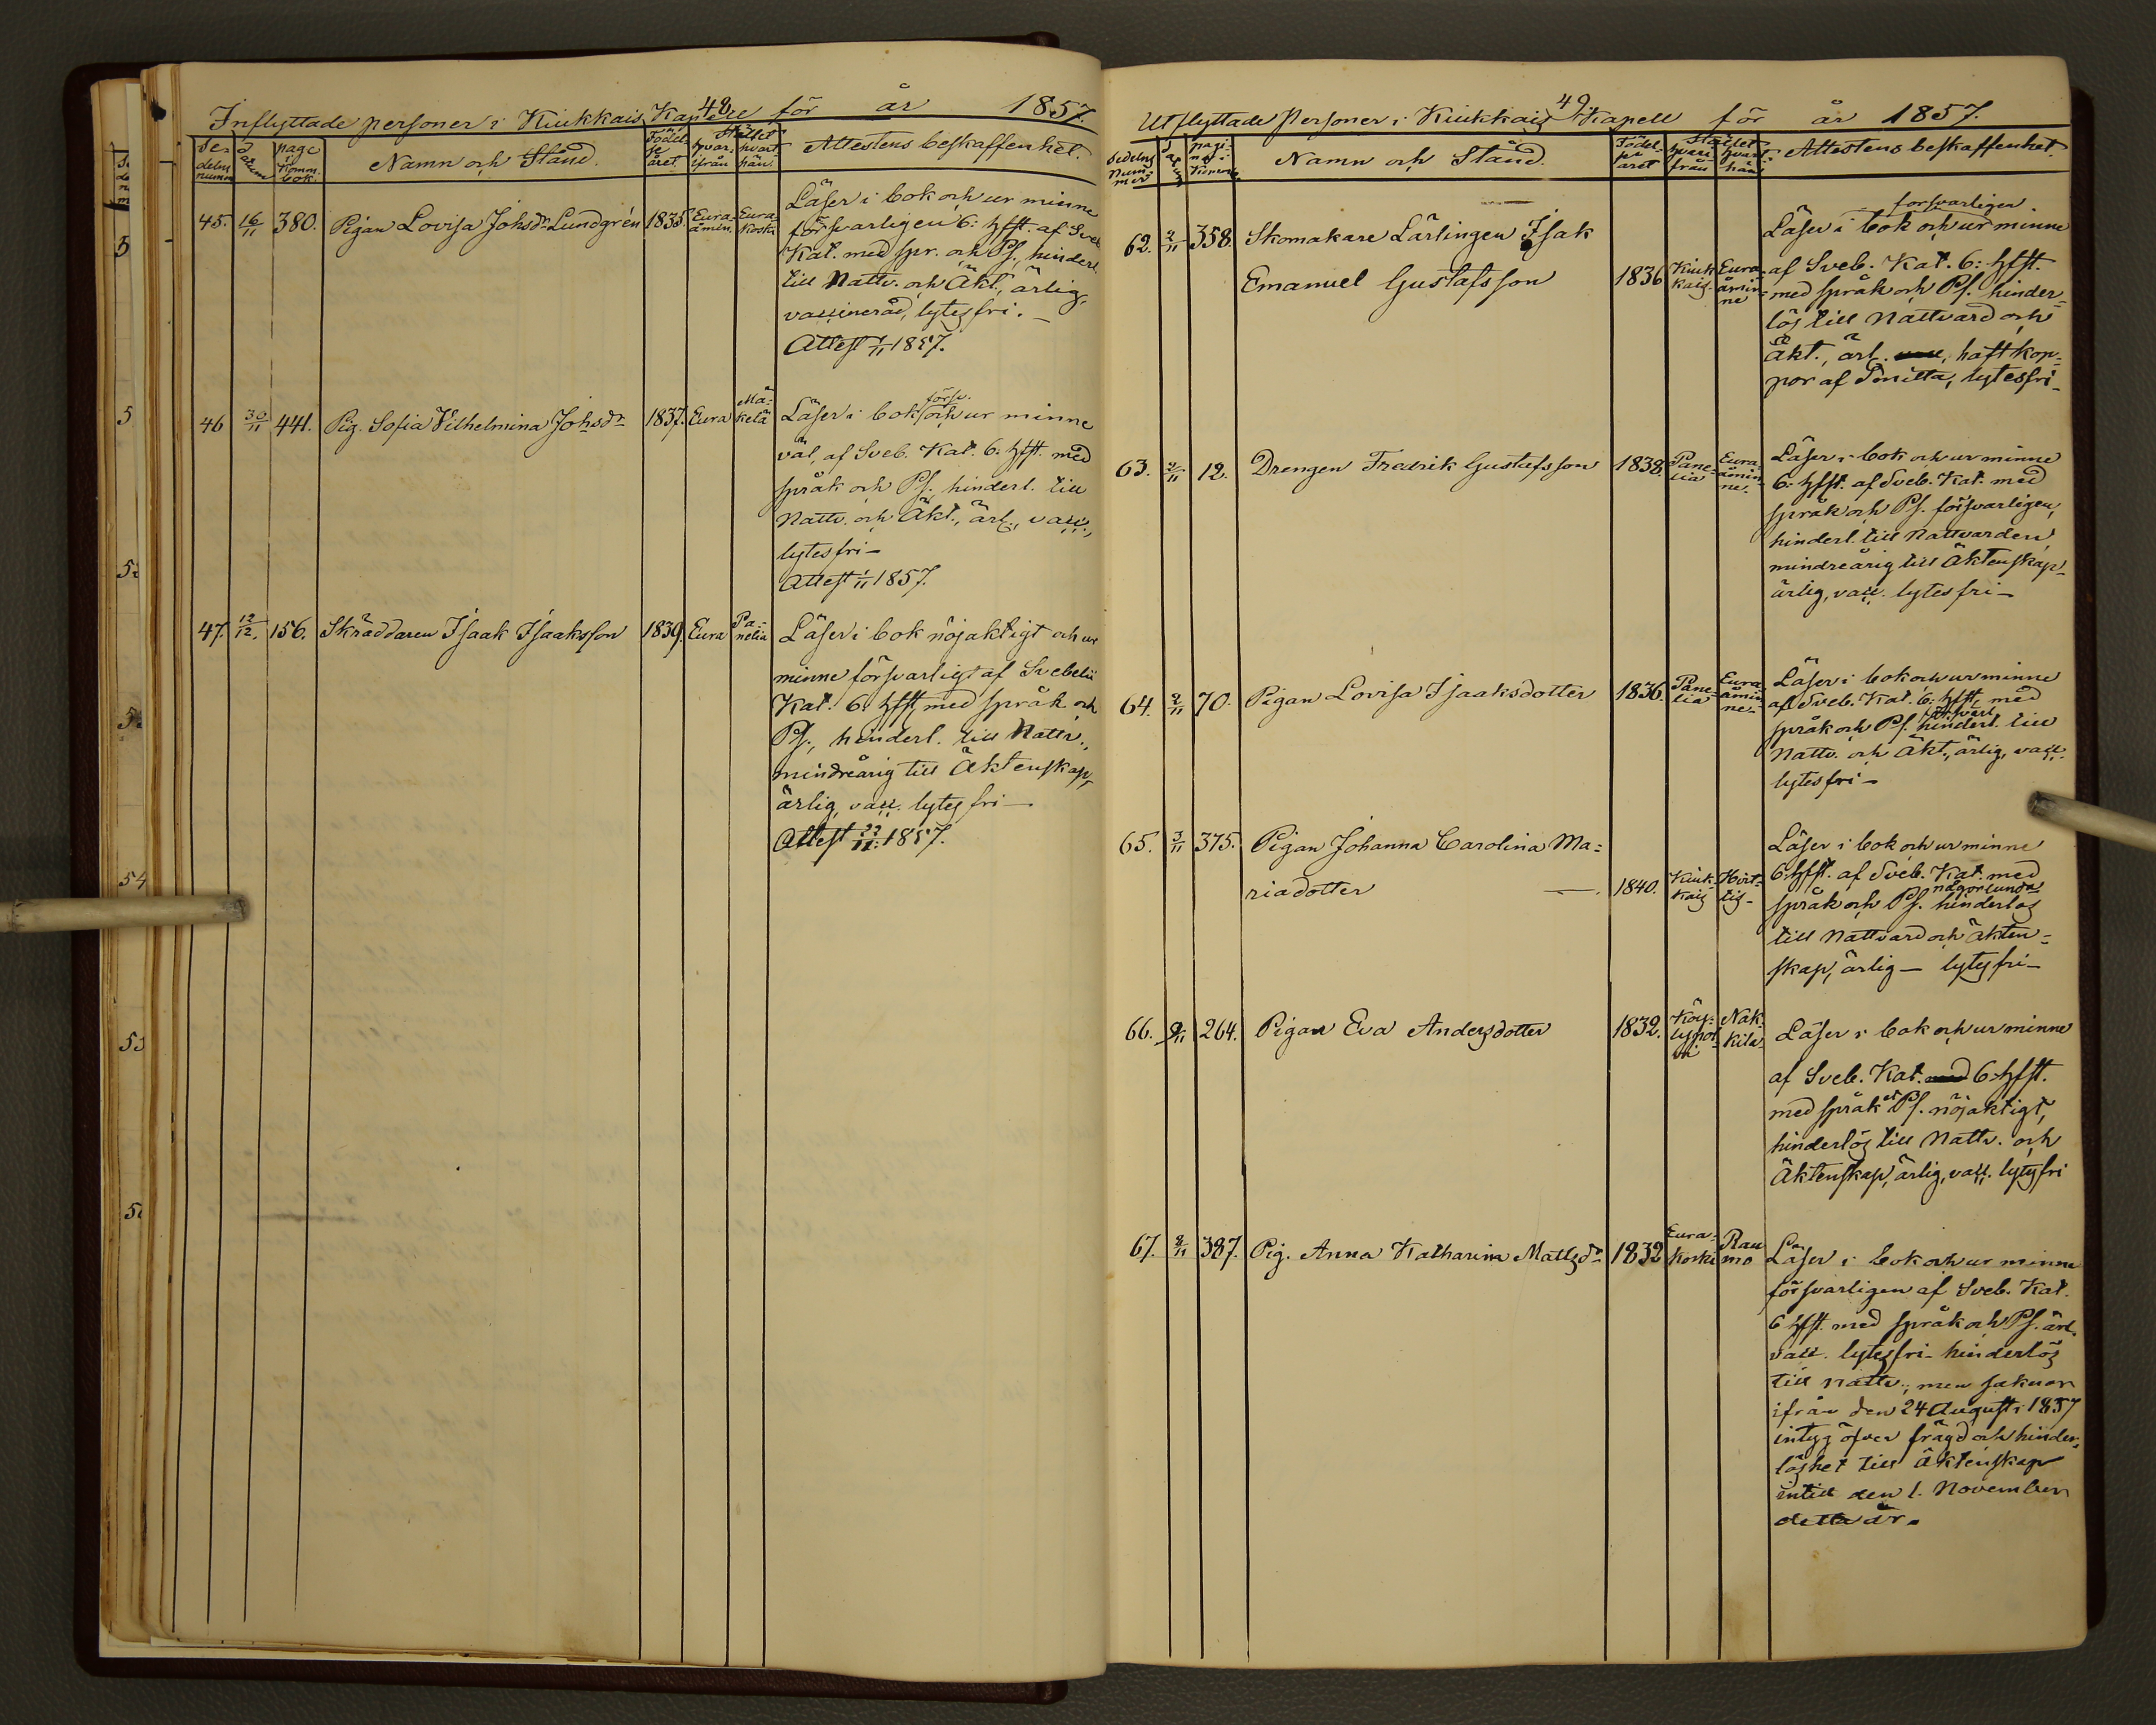 48
Inflyttade personer i Kiukkais Kapell för år 1857.
Sedelns nummer
Datum
page i Komm. bok.
Namn och Stånd.
Födelse året
Stället
hvarifrån
hvarthän
Attestens beskaffenhet.
45. 16/11 380. Pigan Lovisa Johsdr Lundgrén 1835. Euraåmin. Eurakoski
Läser i bok och ur minne
försvarligen 6: hfst. af Sveb.
Kat. med spr. och Ps., hinderl.
till Nattv. och Äkt., ärlig,
vaccinerad, lytesfri. –
Attest 1/11 1857.
46 30/11 441. Pig. Sofia Vilhelmina Johsdr 1837. Eura Mäkelä
försv.
Läser i bok och ur minne
väl, af Sveb. Kat. 6: hfst. med
språk och Ps., hinderl. till
Nattv. och Äkt., ärl., vacc.,
lytesfri –
Attest 1/11 1857.
47. 12/12. 156. Skräddaren Isaak Isaaksson 1839. Eura Panelia
Läser i bok nöjaktigt och ur
minne försvarligt af Svebelii
Kat. 6: hfst med språk och
Ps., hinderl. till Nattv.,
mindreårig till Äktenskap,
ärlig, vacc. lytesfri –
Attest 22/11. 1857.
49
Utflyttade Personer i Kiukkais Kapell för år 1857.
Sedelns Nummer
Namn och Stånd.
Födelse året
Stället
hvarifrån
hvarthän
Attestens beskaffenhet.
62. 2/11 358. Skomakare Lärlingen Isak
Emanuel Gustafsson 1836 Kiukkais. Euraåminne
försvarligen.
Läser i bok och ur minne
af Sveb. Kat. 6: hfst.
med språk och Ps. hinder-
lös till Nattvard och
Äkt., ärl. haft kop-
por af Smitta, lytesfri –
63. 2/11 12. Drengen Fredrik Gustafsson 1838. Panelia Euraåminne.
Läser i bok och ur minne
6. hfst. af Sveb. Kat. med
språk och Ps. försvarligen,
hinderl. till Nattvarden,
mindreårig till Äktenskap –
ärlig, vacc. lytesfri –
64. 2/11 70. Pigan Lovisa Isaaksdotter 1836. Panelia Euraåminne.
Läser i bok och ur minne
af Sveb. Kat. 6: hfst, med
försvarl.
språk och Ps. hinderl. till
Nattv. och Äkt., ärlig, vacc.
lytesfri –
65. 3/11 375. Pigan Johanna Carolina Ma=
riadotter – 1840. Kiukkais Hvittis –
Läser i bok och ur minne
6. hfst. af Sveb. Kat. med
någorlunda
språk och Ps. hinderlös
till Nattvard och Äkten=
skap, ärlig – lytesfri –
66. 9/11 264. Pigan Eva Andersdotter 1832. Nakkila
Läser i bok och ur minne
af Sveb. Kat. med 6. hfst.
med språk et Ps. nöjaktigt,
hinderlös till Nattv. och
Äktenskap, ärlig, vacc. lytesfri
67. 8/11 387. Pig. Anna Katharina Mattsdr 1832 Eurakoski Raumo
Läser i bok och ur minne
försvarligen af Sveb. Kat.
6 hfst. med språk och Ps. ärl.
vacc. lytesfri – hinderlös
till nattv., men saknar
ifrån den 24 Augusti 1857
intyg öfver frägd och hinder-
löshet till Äktenskap
intill den 1. November
detta år.